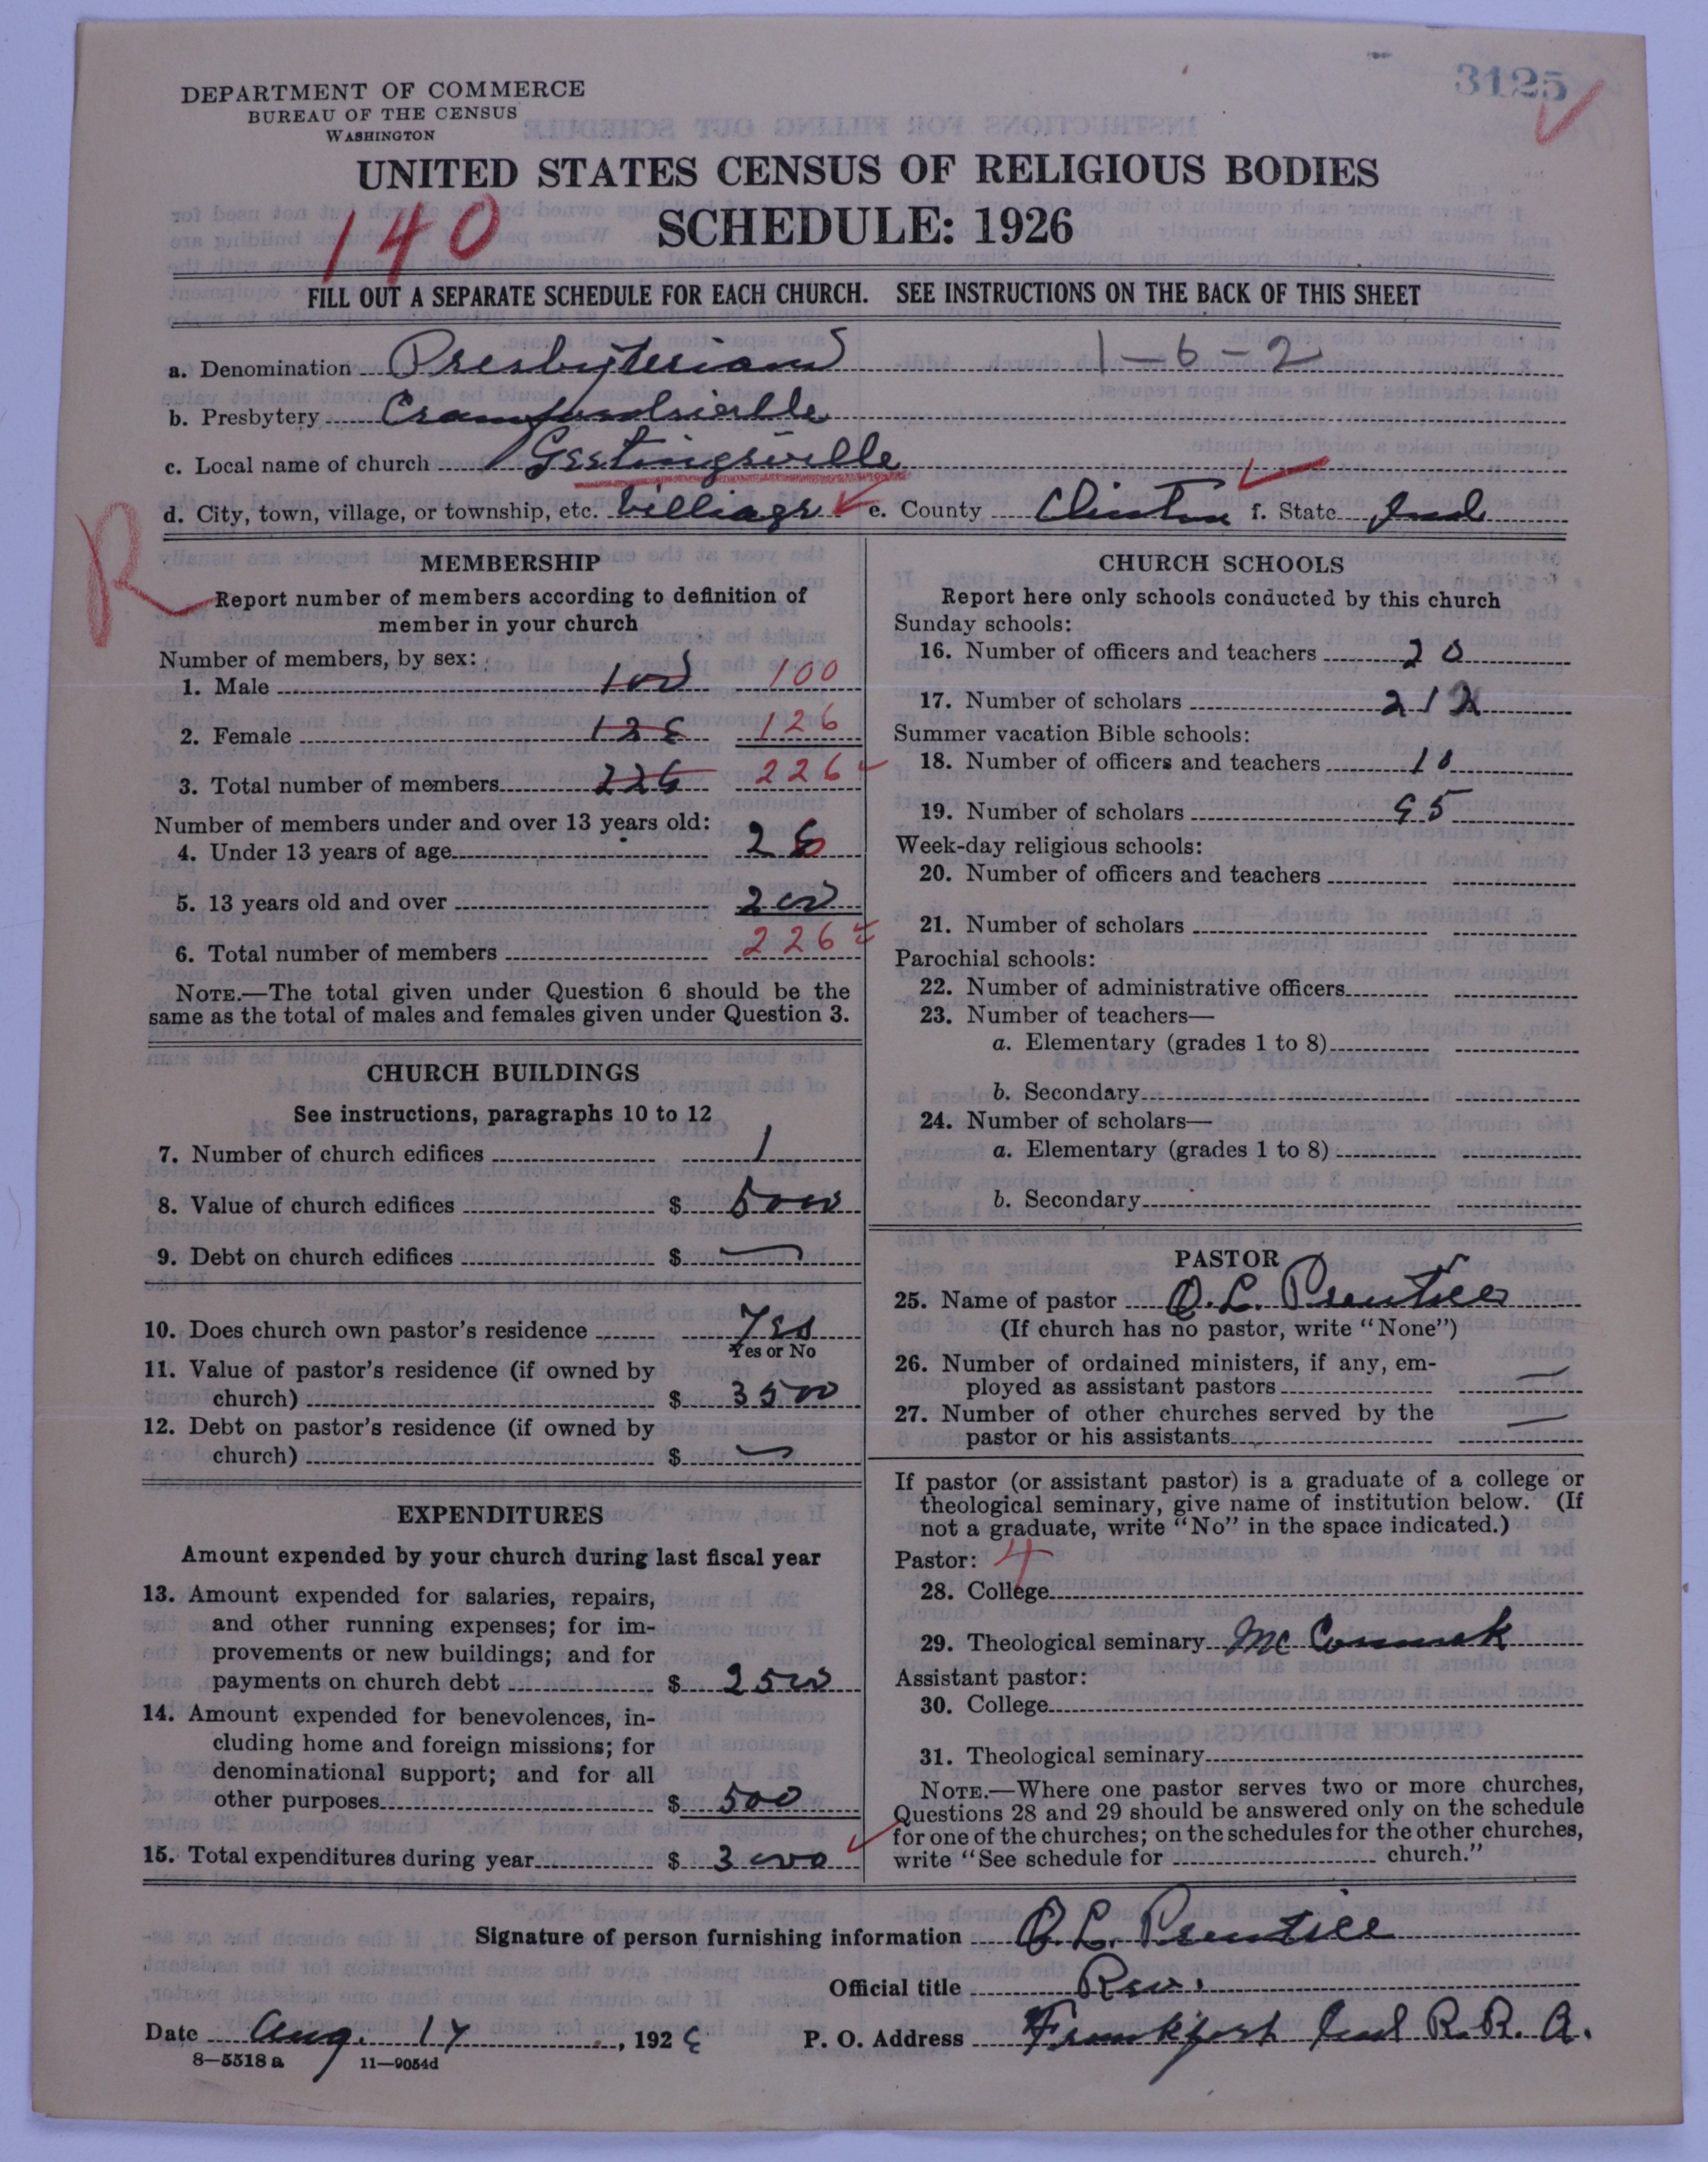 3125
DEPARTMENT OF COMMERCE
BUREAU OF THE CENSUS
WASHINGTON
UNITED STATES CENSUS OF RELIGIOUS BODIES
140
SCHEDULE: 1926
FILL OUT A SEPARATE SCHEDULE FOR EACH CHURCH. SEE INSTRUCTIONS ON THE BACK OF THIS SHEET
a. Denomination Presbyterian 1-6-2
b. Presbytery Crawfordsville
c. Local name of church Geetingsville
d. City, town, village, or township, etc. Village e. County Clinton f. State Ind
R
MEMBERSHIP
Report number of members according to definition of
member in your church
Number of members, by sex:
1. Male 100 100
2. Female 126 126
3. Total number of members 226 226
Number of members under and over 13 years old:
4. Under 13 years of age 26
5. 13 years old and over 200
6. Total number of members 226
NOTE.—The total given under Question 6 should be the
same as the total of males and females given under Question 3.
CHURCH BUILDINGS
See instructions, paragraphs 10 to 12
7. Number of church edifices 1
8. Value of church edifices $ 5000
9. Debt on church edifices $ —
10. Does church own pastor's residence Yes
Yes or No
11. Value of pastor's residence (if owned by
church) $ 3500
12. Debt on pastor's residence (if owned by
church) $ —
EXPENDITURES
Amount expended by your church during last fiscal year
13. Amount expended for salaries, repairs,
and other running expenses; for im-
provements or new buildings; and for
payments on church debt $ 2500
14. Amount expended for benevolences, in-
cluding home and foreign missions; for
denominational support; and for all
other purposes $ 500
15. Total expenditures during year $ 3000
CHURCH SCHOOLS
Report here only schools conducted by this church
Sunday schools:
16. Number of officers and teachers 20
17. Number of scholars 212
Summer vacation Bible schools:
18. Number of officers and teachers 10
19. Number of scholars 95
Week-day religious schools:
20. Number of officers and teachers
21. Number of scholars
Parochial schools:
22. Number of administrative officers
23. Number of teachers—
a. Elementary (grades 1 to 8)
b. Secondary
24. Number of scholars—
a. Elementary (grades 1 to 8)
b. Secondary
PASTOR
25. Name of pastor O. L. Prentice
(If church has no pastor, write "None")
26. Number of ordained ministers, if any, em-
ployed as assistant pastors —
27. Number of other churches served by the
pastor or his assistants —
If pastor (or assistant pastor) is a graduate of a college or
theological seminary, give name of institution below. (If
not a graduate, write "No" in the space indicated.)
Pastor: 4
28. College
29. Theological seminary McCormick
Assistant pastor:
30. College
31. Theological seminary
NOTE.—Where one pastor serves two or more churches,
Questions 28 and 29 should be answered only on the schedule
for one of the churches; on the schedules for the other churches,
write "See schedule for church."
Signature of person furnishing information O. L. Prentice
Official title Rev.
Date Aug. 17, 1926 P. O. Address Frankfort Ind R.R. A.
8—5518 a 11—9054d